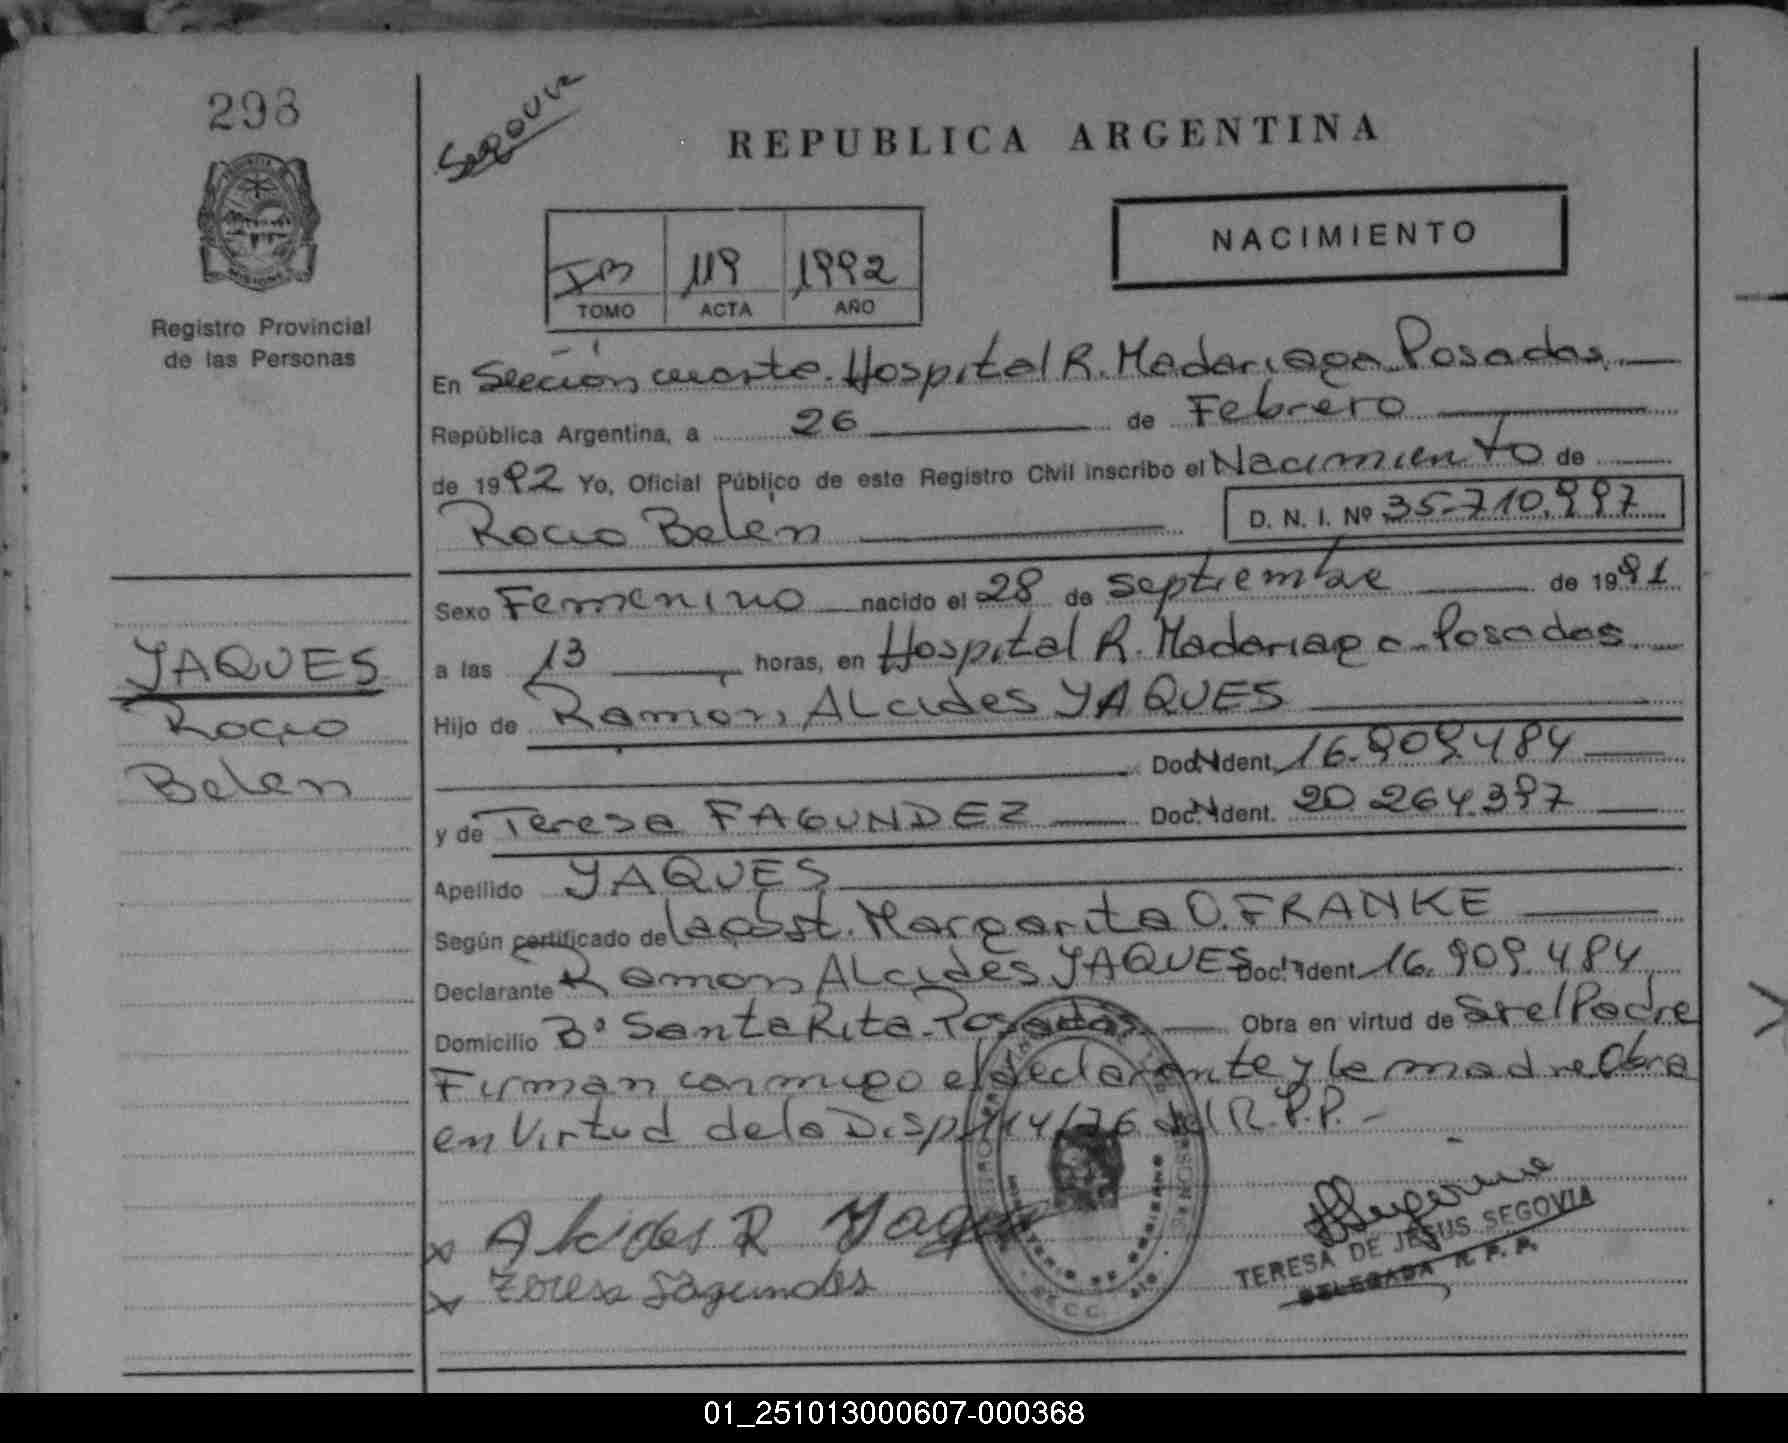 298
Registro Provincial
de las Personas
YAQUES
Rocio
Belen
Segovia
REPUBLICA ARGENTINA
NACIMIENTO
119 1992
TOMO ACTA AÑO
En Sección cuarta. Hospital R. Madariaga Posadas.
República Argentina, a 26 de Febrero
de 1992 Yo, Oficial Público de este Registro Civil inscribo el Nacimiento de
Rocio Belen D. N. I. Nº 35.710.997
Sexo Femenino nacido el 28 de Septiembre de 1991
a las 13 horas, en Hospital R. Madariaga - Posadas
Hijo de Ramon Alcides YAQUES
Doc. Ident. 16.909.484
y de Teresa FAGUNDEZ Doc. Ident. 20.264.397
Apellido YAQUES
Según certificado de la obst. Margarita O. FRANKE
Declarante Ramon Alcides YAQUES Doc. Ident. 16.909.484
Domicilio Bº Santa Rita - Posadas Obra en virtud de Ser el Padre
Firman conmigo el declarante y la madre Obra
en Virtud de la Disp. 114/76 del R.P.P.-
x Alcides R Yaques
x Teresa Fagundes
TERESA DE JESUS SEGOVIA
DELEGADA R. P. P.
01_251013000607-000368